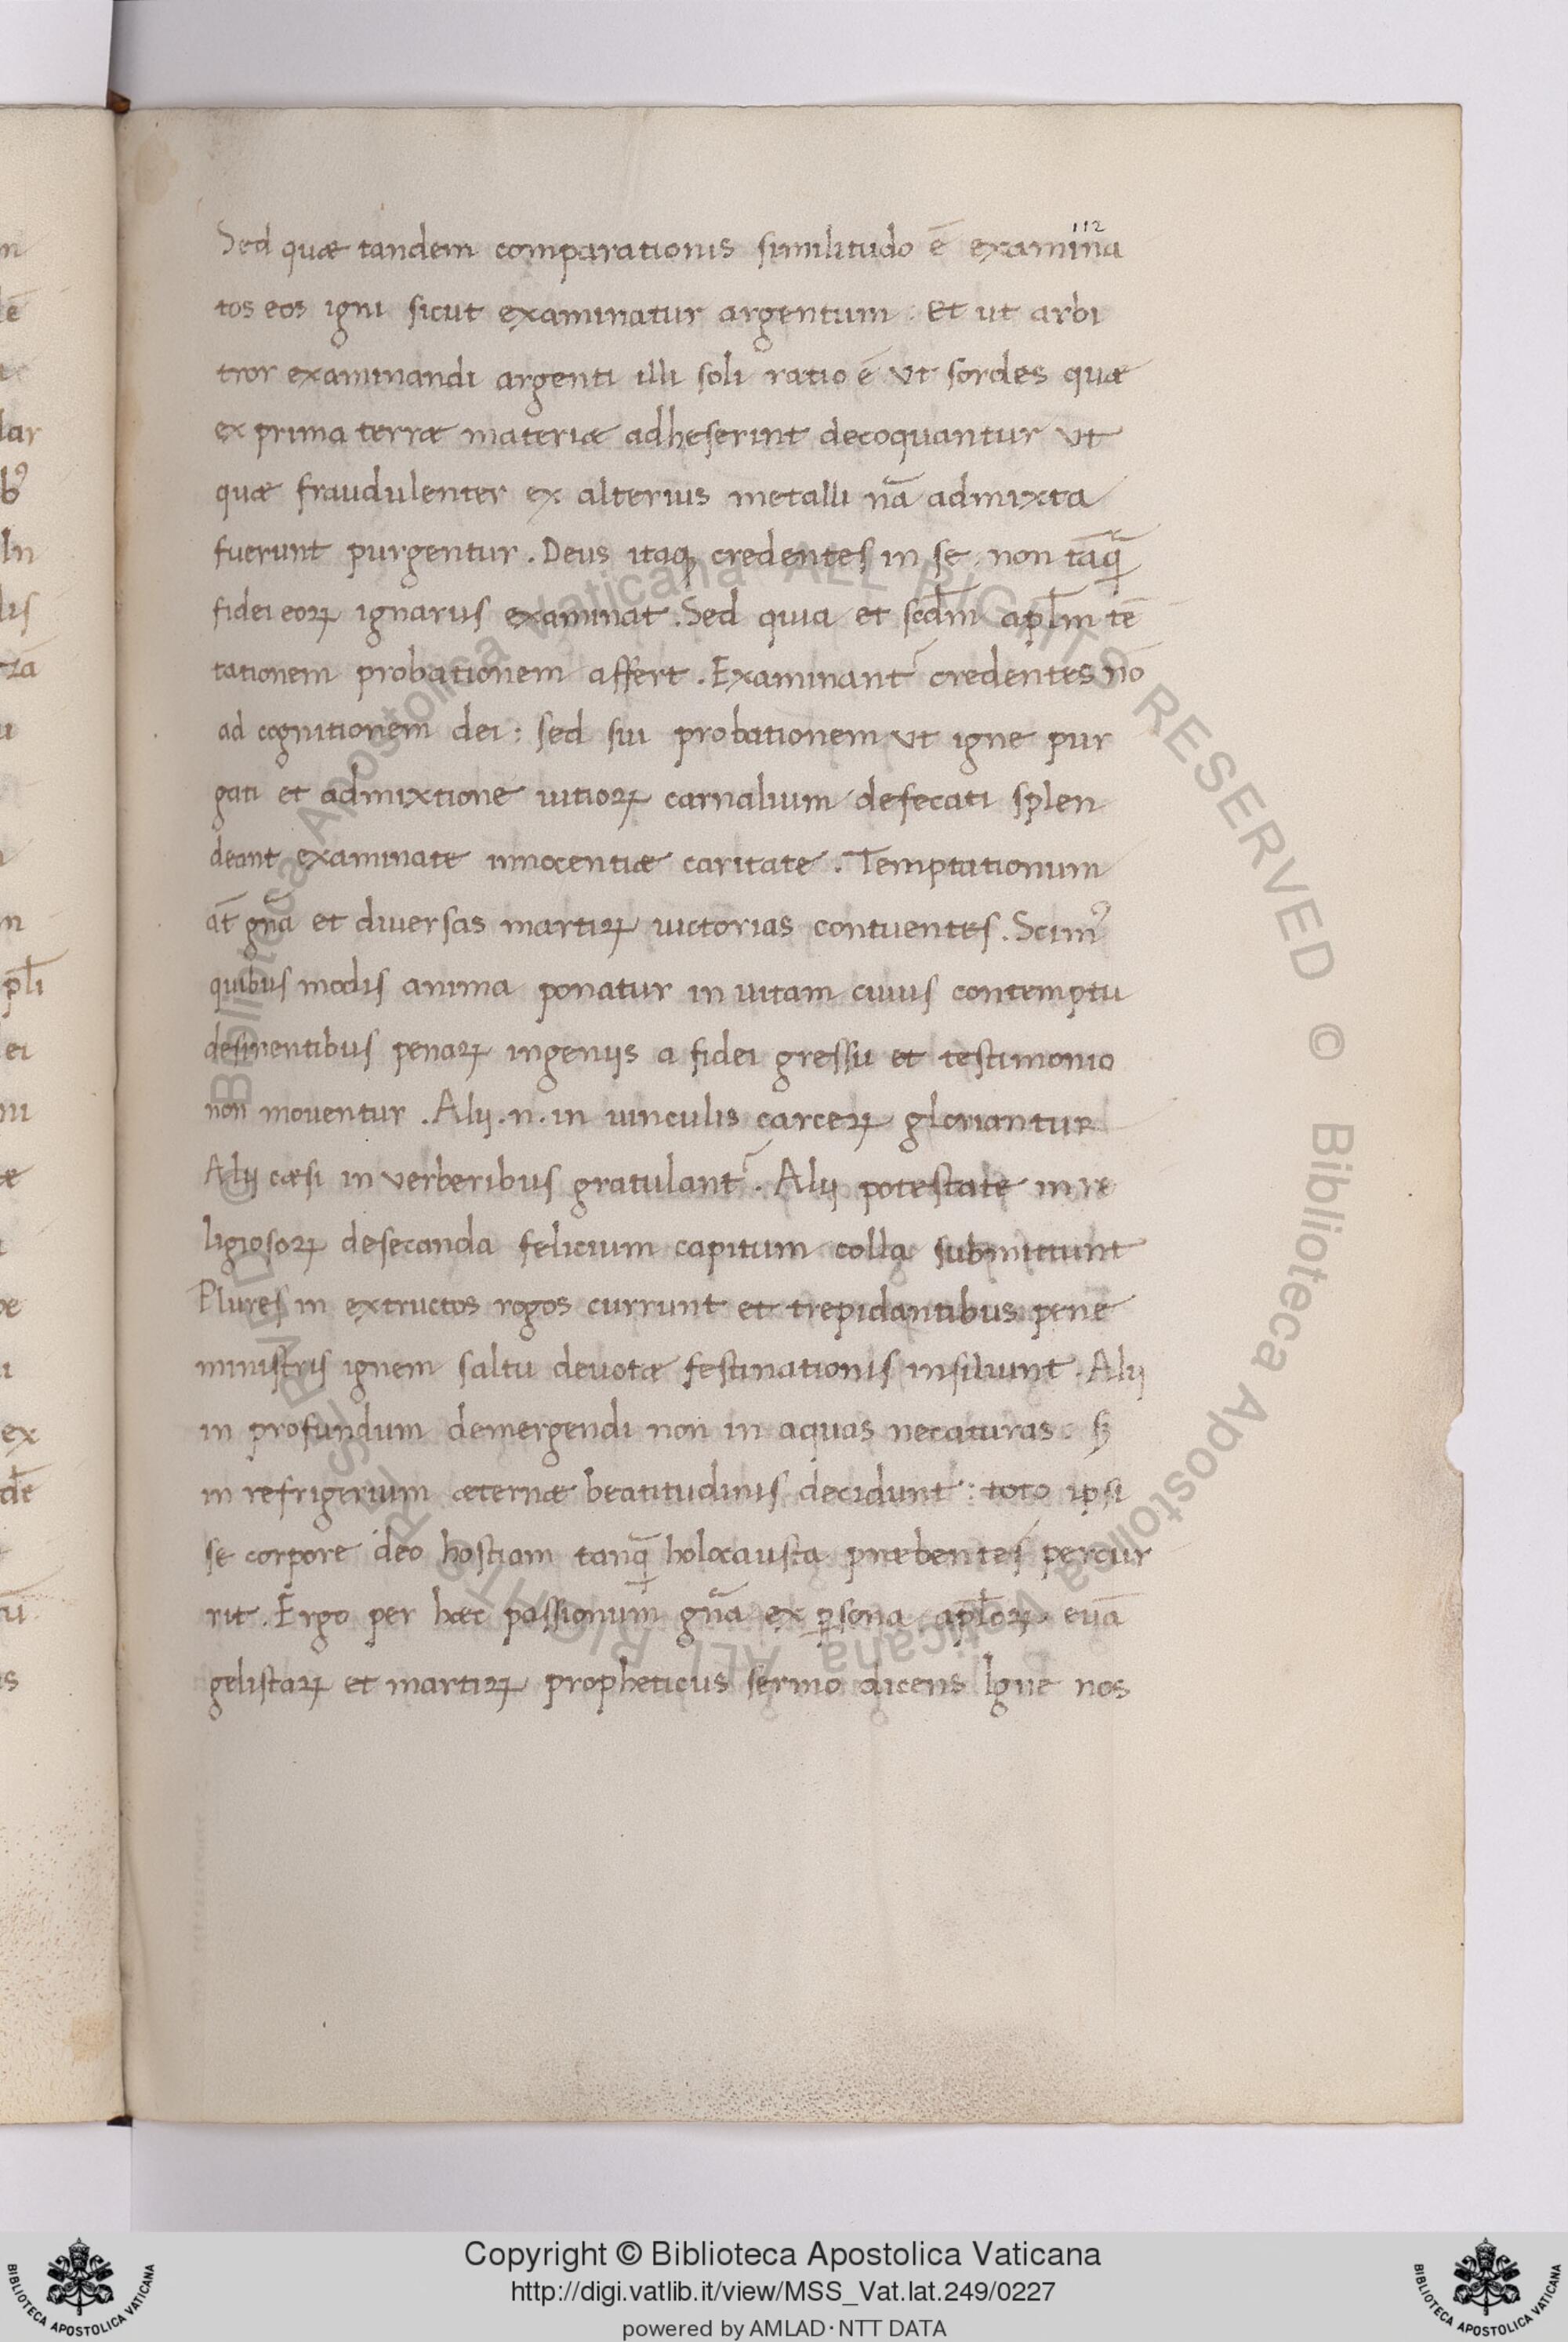 112
Sed quæ tandem comparationis similitudo ē examina
tos eos igni sicut examinatur argentum. Et ut arbi
tror examinandi argenti illi soli ratio ē ut sordes quæ
ex prima terræ materiæ adheserint decoquantur ut
quæ fraudulenter ex alterius metalli nā admixta
fuerunt purgentur. Deus itaqꝫ credentes in se non tāq̨ͣ
fidei eoꝝ ignarus examinat. Sed quia et scd̄m apl̄m tē
tationem probationem affert. Examinant᷑ credentes nō
ad cognitionem dei: sed sui probationem ut igne pur
gati et admixtione uitioꝝ carnalium defecati splen
deant examinate innocentiæ caritate. Temptationum
āt gn̄a et diuersas martiꝝ uictorias contuentes. Scimꝰ
quibus modis anima ponatur in uitam cuius contemptu
desinentibus penaꝝ ingeniis a fidei gressu et testimonio
non mouentur. Alij .n. in uinculis carceꝝ gloriantur
Alij cæsi in verberibus gratulant᷑. Alij potestate in re
ligiosoꝝ desecanda felicium capitum colla submittunt
Plures in extructos rogos currunt et trepidantibus pene
ministris ignem saltu deuotæ festinationis insiliunt. Alij
in profundum demergendi non in aquas necaturas sꝫ
in refrigerium æternæ beatitudinis decidunt: toto ipsi
se corpore deo hostiam tanq̨ͣ holocausta præbentes percur
rit. Ergo per hæc passionum gn̄a ex ꝑsona apl̄oꝝ euā
gelistaꝝ et martiꝝ propheticus sermo dicens Igne nos
© Biblioteca Apostolica Vaticana ALL RIGHTS RESERVED © Biblioteca Apostolica Vaticana ALL RIGHTS RESERVED
Copyright © Biblioteca Apostolica Vaticana
http://digi.vatlib.it/view/MSS_Vat.lat.249/0227
powered by AMLAD·NTT DATA
BIBLIOTECA APOSTOLICA VATICANA
BIBLIOTECA APOSTOLICA VATICANA